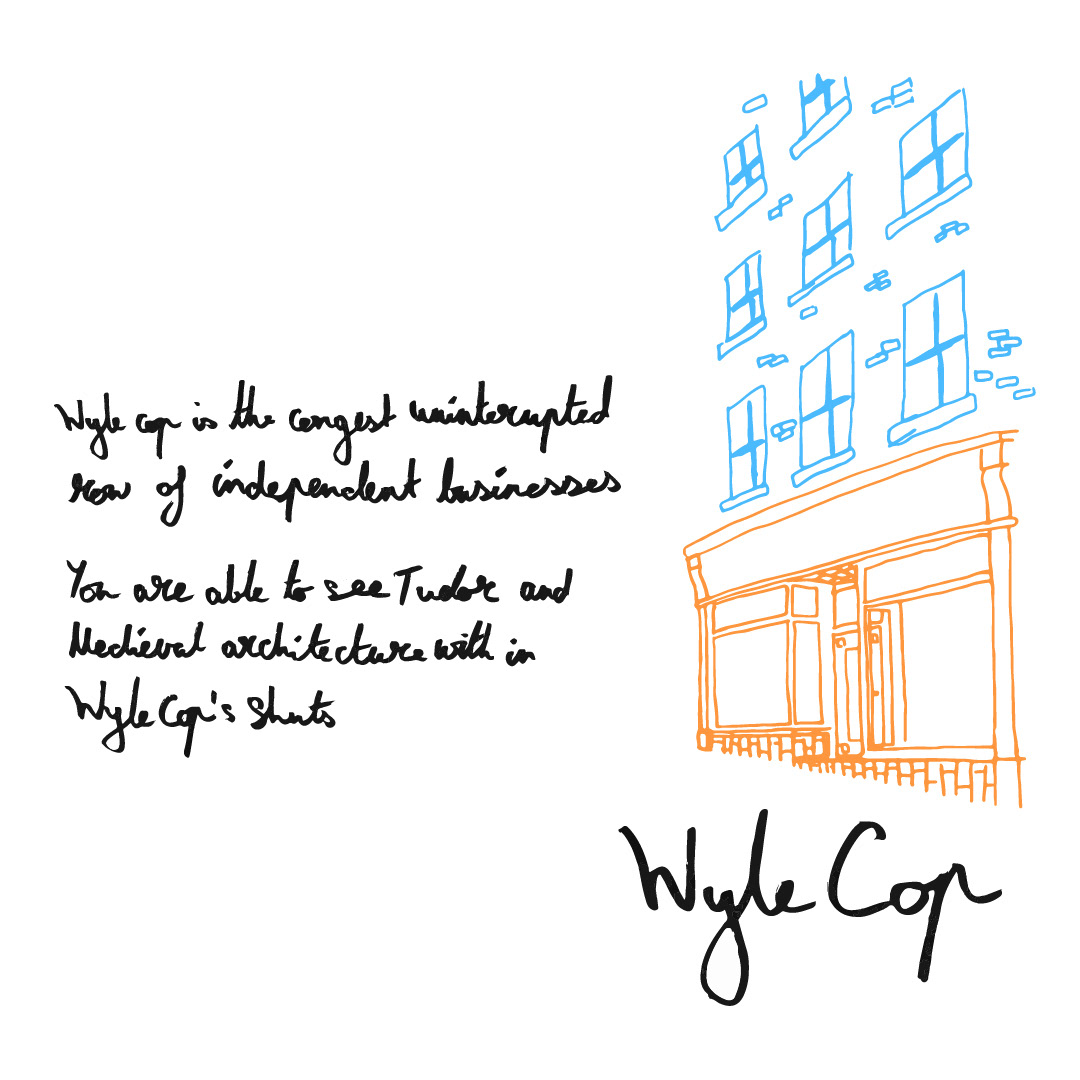 Wyle cop is the longest uninterrupted
row of independent businesses
You are able to see Tudor and
Medieval architecture with in
Wyle Cop's Shuts
Wyle Cop